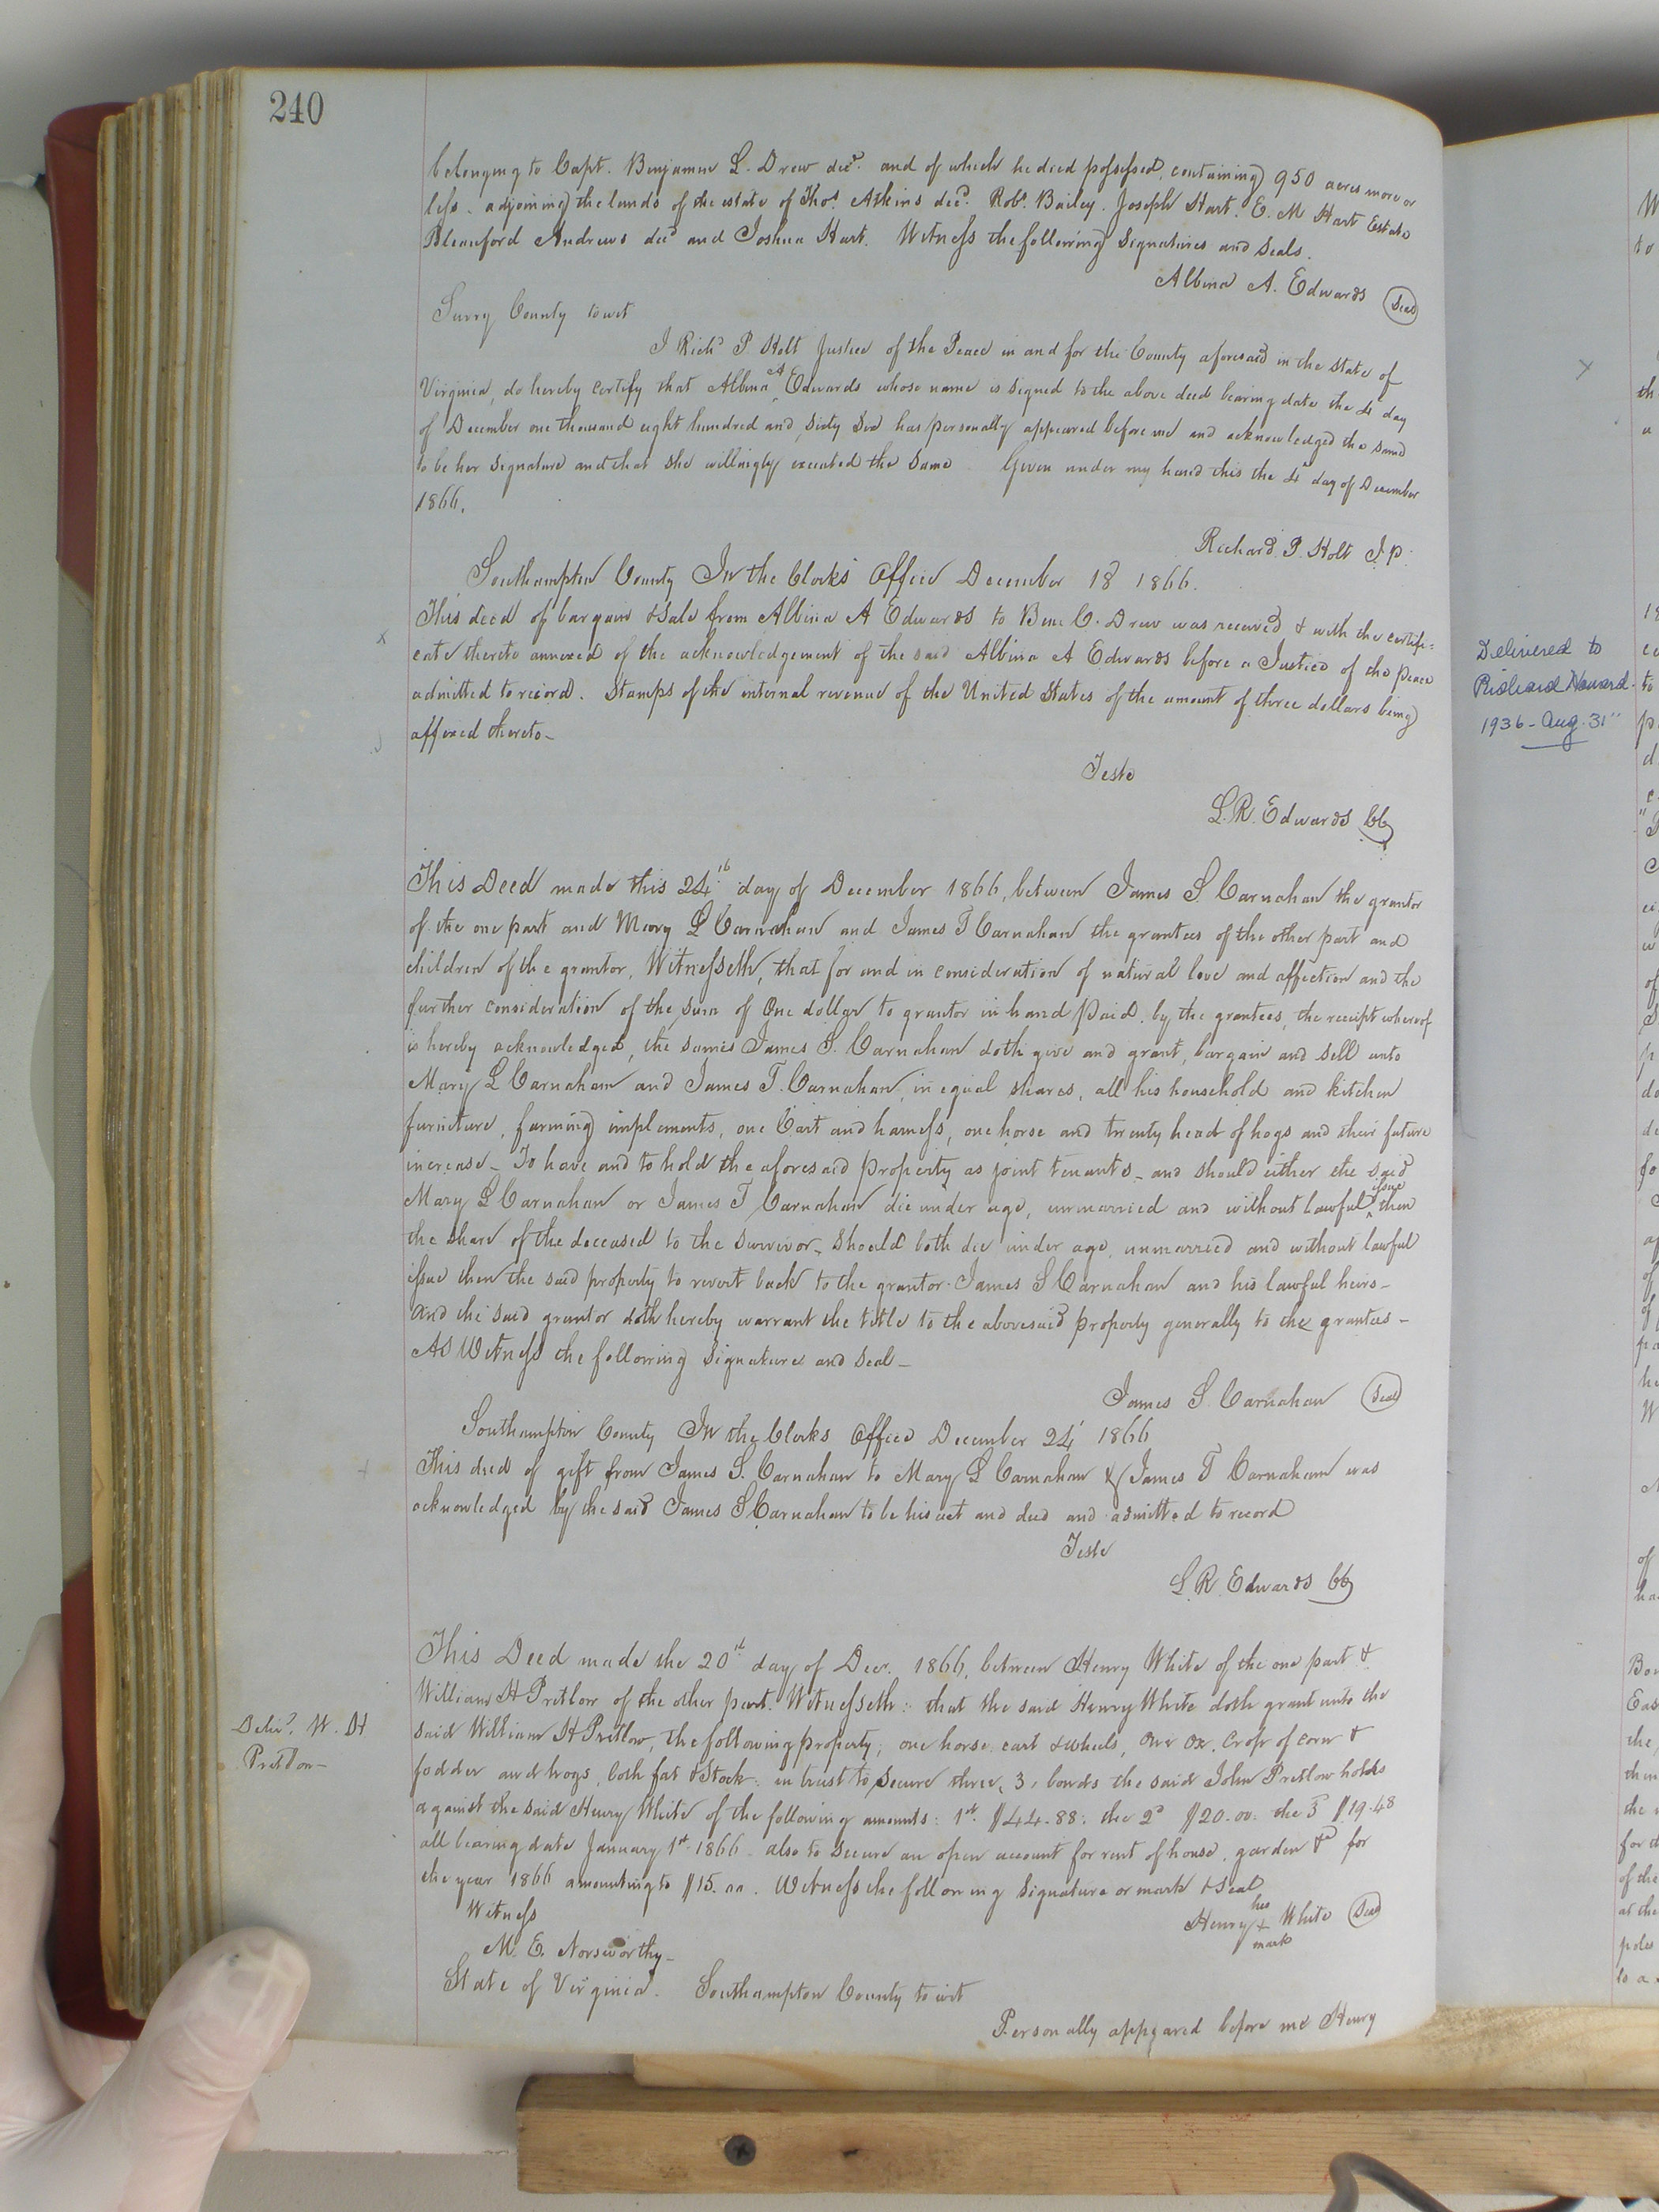 240
belonging to Capt. Benjamin L. Drew decd. and of which he died possessed, containing 950 acres more or
less. adjoining the lands of the estate of Thos. Atkins decd. Robt. Bailey. Joseph Hart. E. M Hart Estate
Andrews decd and Joshua Hart. Witness the following Signatures and Seals.
Albina A. Edwards (Seal)
Surry County to wit
I Richd P. Holt Justice of the Peace in and for the County aforesaid in the State of
Virginia, do hereby certify that Albina A Edwards whose name is signed to the above deed bearing date the 4th day
of December one thousand eight hundred and Sixty Six has personally appeared before me and acknowledged the same
to be her signature and that she willingly executed the same Given under my hand this the 4th day of December
1866.
Richard. P. Holt J.P.
Southampton County In the Clerks Office December 18 1866.
This deed of bargain & sale from Albina A Edwards to Benj C. Drew was received & with the certifi-
cate thereto annexed of the acknowledgement of the said Albina A Edwards before a Justice of the peace
admitted to record. Stamps of the internal revenue of the United States of the amount of three dollars being
affixed thereto-
Teste
L. R. Edwards CC
This Deed made this 24th day of December 1866, between James S. Carnahan the grantor
of the one part and Mary L Carnahan and James T Carnahan the grantees of the other part and
children of the grantor, Witnesseth, that for and in consideration of natural love and affection and the
further consideration of the sum of One dollar to grantor in hand paid by the grantees, the receipt whereof
is hereby acknowledged, the James S. Carnahan doth give and grant, bargain and sell unto
Mary L Carnahan and James T. Carnahan, in equal shares, all his household and kitchen
furniture, farming implements, one Cart and harness, one horse and twenty head of hogs and their future
increase- To have and to hold the aforesaid property as joint tenants- and should either the said
Mary L Carnahan or James T Carnahan die under age, unmarried and without lawful issue then
the share of the deceased to the survivor- Should both die under age, unmarried and without lawful
issue then the said property to revert back to the grantor James S Carnahan and his lawful heirs-
And the said grantor doth hereby warrant the title to the abovesaid property generally to the grantees-
As Witness the following Signatures and Seal-
James S. Carnahan (Seal)
Southampton County In the Clerks Office December 24 1866
This deed of gift from James S. Carnahan to Mary L Carnahan & James T Carnahan was
acknowledged by the said James S Carnahan to be his act and deed and admitted to record
Teste
L. R. Edwards CC
This Deed made the 20th day of Decr. 1866, between Henry White of the one part &
William H Pretlow of the other part. Witnesseth: that the said Henry White doth grant unto the
said William H Pretlow, the following property; one horse cart & wheels, One Ox. Crop of corn &
fodder and hogs, both fat & Stock: in trust to secure three, 3, bonds the said John Pretlow holds
against the said Henry White of the following amounts: 1st. $44.88: the 2d $20.00: the 3d $19.48
all bearing date January 1st 1866 also to Secure an open account for rent of house, garden &c for
the year 1866 amounting to $15.00. Witness the following Signature or mark & Seal
Witness
Henry his + mark White (Seal)
M. E. Norsworthy-
State of Virginia. Southampton County to wit
Personally appeared before me Henry
Delivd. W. H
Pretlow-
Delivered to
Richard Howard-
1936-Aug. 31"